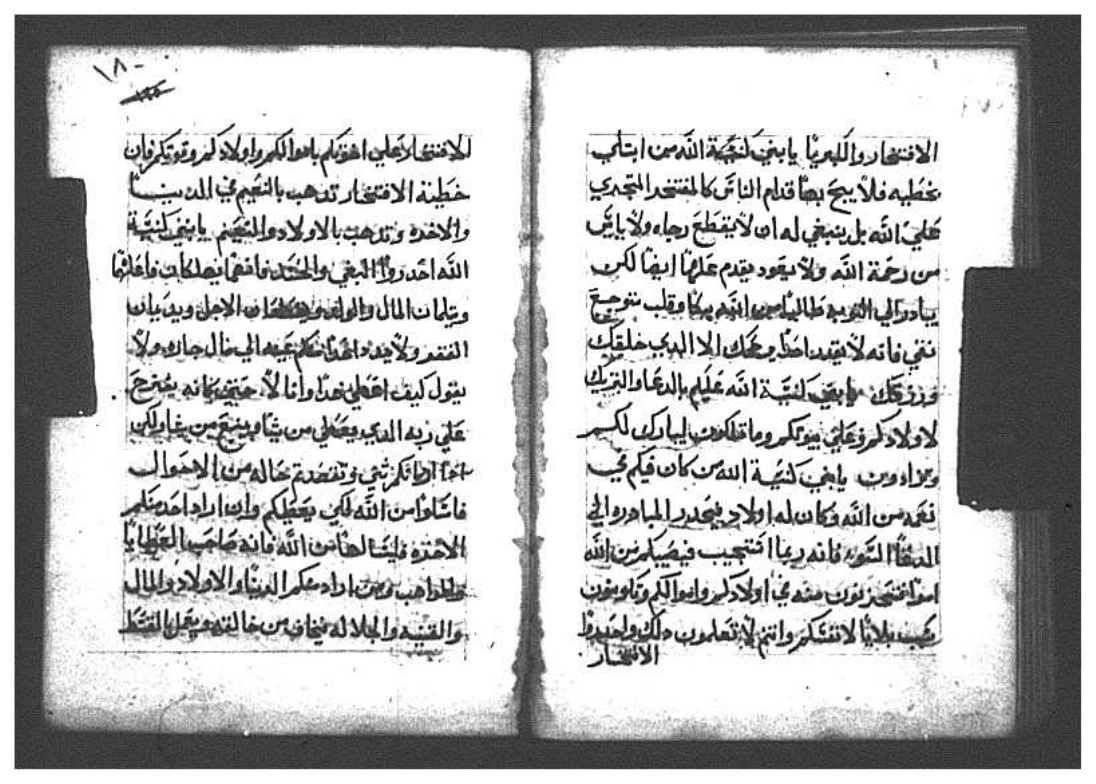 الافتخار والكبريا يابني كنيسة الله من ابتلي
بخطيه فلا يبح بها قدام الناس كالمفتخر المتجري
علي الله بل ينبغي له ان لا يقطع رجاه ولا ياس
من رحمة الله ولا يعود يقدم عليها ايضا لكن
يبادر الي التوبه طالبا من الله ببكا وقلب متوجع
نقي فانه لا يقدر احدا يرحمك الا الذي خلقك
ورزقك يابني كنيسة الله عليكم بالدعا والتبريك
لاولادكم وعلي بيوتكم وما تملكون ليبارك لكم
يابني كنيسة الله من كان فيكم في
نعمه من الله وكان له اولاد فيحدر المبادره الي
الدعا السوء فانه ربما استجيب فيصيبكم من الله
امرا تحزنون منه في اولادكم واموالكم وتكونون
سبب بلايا لانفسكم وانتم لا تعلمون ذلك واحدروا
الافتخار
١٨٠
الافتخار علي اخوتكم باموالكم واولادكم وقوتكم فان
خطية الافتخار تدهب بالنعيم في الدنيا
والاخره وتدهب بالاولاد والنعيم يابني كنيسة
الله احدروا البغي والحسد فانهما يهلكان فاعلهما
ويتلفان المال والولد الاجل ويدنيان
الفقر ولا يمد احدا منكم عينه الي مال جاره ولا
يقول كيف اعطي هدا وانا لا حتي كانه يقترح
علي ربه الدي يعطي من يشا ويمنع من يشا ولكن
من الاحوال
فاسالوا من الله لكي يعطيكم وان اراد احد منكم
الاخره فليسالها من الله فانه صاحب العطايا
والمواهب ومن اراد منكم الدنيا والاولاد والمال
والقنيه والجلاله فيخاف من خالقه ويعمل القسط